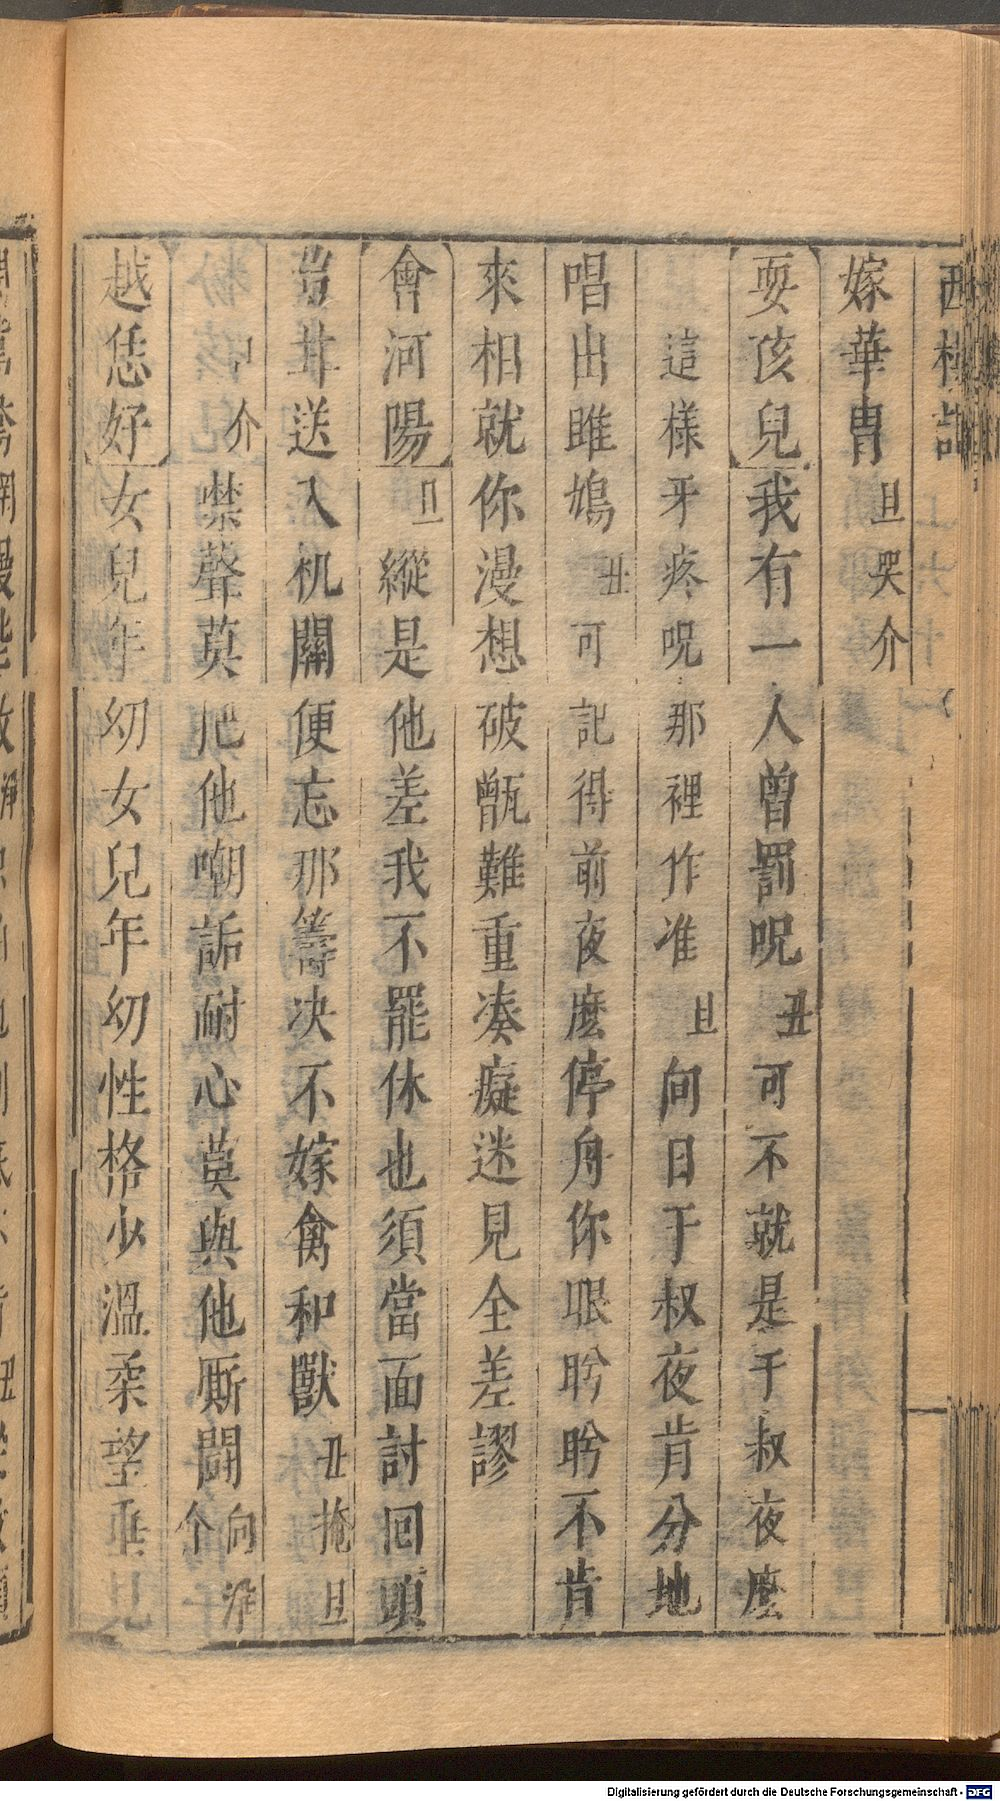 嫁華冑旦哭介
耍孩兒我有一人曾罰呪丑可不就是于叔夜麽
這樣牙疼呪那裡作准旦向日于叔夜肯分地
唱出雎鳩丑可記得前夜麽停舟你眼盻盻不肯
來相就你漫想破甑難重凑癡迷見全差謬
會河陽旦縱是他差我不罷休也須當面討回頭
豈甘送入机關便忘那籌决不嫁禽和獸丑掩旦
口介禁聲莫把他嘲詬耐心莫與他厮鬪向淨介
越恁好女兒年幼女兒年幼性格少溫柔望垂
Digitalisierung gefördert durch die Deutsche Forschungsgemeinschaft - DFG